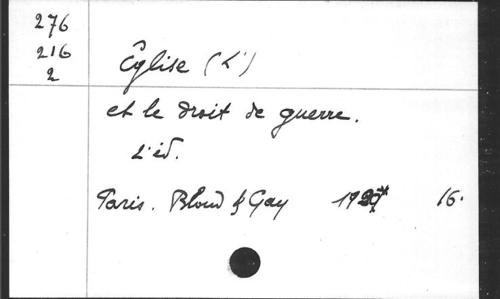 276
216
2
Église (L')
et le droit de guerre.
2 éd.
Paris. Bloud & Gay 1920 16.